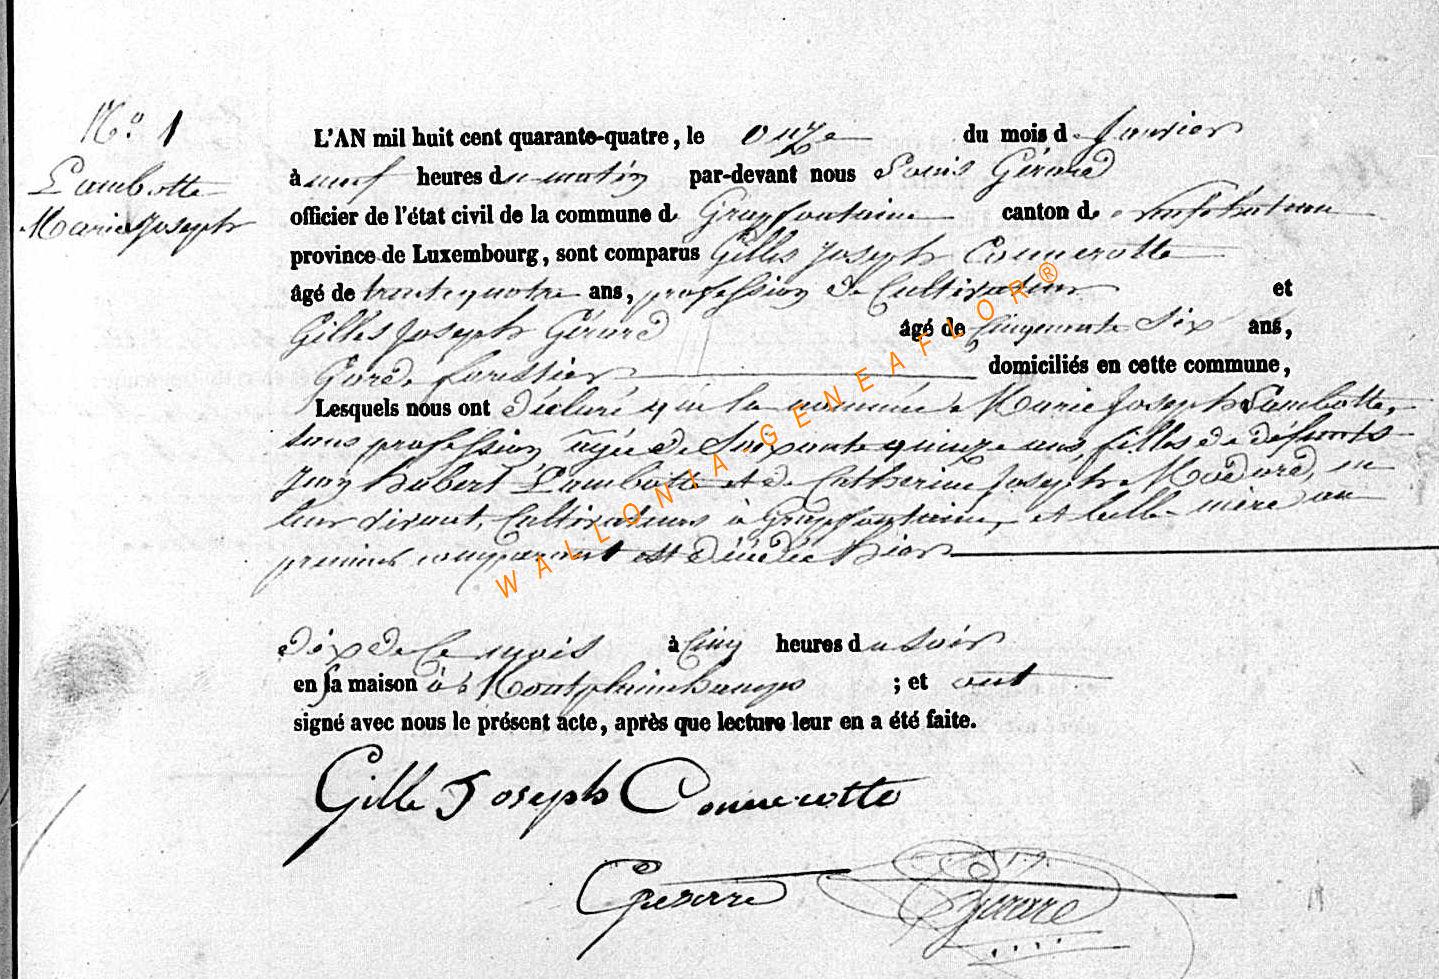 N.º 1
Lambotte
Marie Joseph
L'AN mil huit cent quarante-quatre, le onze du mois de Janvier
à neuf heures du matin par-devant nous Louis Gérard
officier de l'état civil de la commune de Grapfontaine canton de Neufchateau
province de Luxembourg, sont comparus Gilles Joseph Connerotte
âgé de trente quatre ans, profession de Cultivateur et
Gilles Joseph Gérard âgé de Cinquante Six ans,
Garde forestier domiciliés en cette commune,
Lesquels nous ont déclaré que la nommée Marie Joseph Lambotte,
sans profession âgée de Soixante quinze ans, fille de défunts
Jean hubert Lambotte et de Catherine Joseph Modard, en
leur vivant, Cultivateurs à Grapfontaine, et belle mère au
premier comparant est décédée hier
dix de Ce mois à Cinq heures du soir
en sa maison à Montplainchamps ; et ont
signé avec nous le présent acte, après que lecture leur en a été faite.
Gille Joseph Connerotte
Gerard Gerard
WALLONIA-GENEAFLOR®